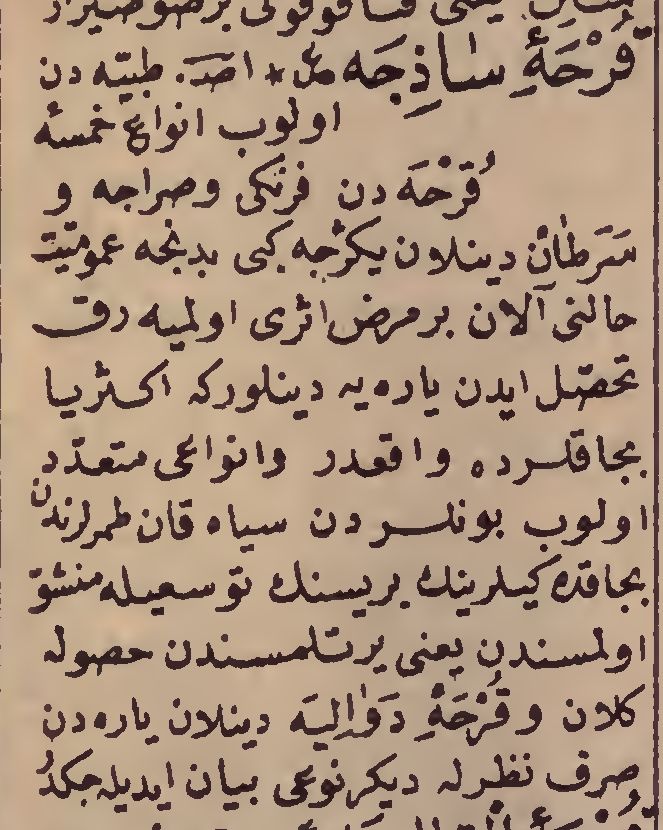 یعنی فنا قوقولی
قُرْحَۀِ سٰاذِجَه مل * اصد. طبیّه دن
اولوب انواع خمسهٔ
قُرْحَه دن فرنکی وصراجه و
سَرَطانْ دینلان یکرجه کبی بدنجه عمومیّت
حالنی آلان بر مرض اثری اولمیه رق
تحصّل ایدن یاره یه دینلورکه اکثریا
بجاقلرده واقعدر وانواعی متعدّد
اولوب بونلردن سیاه قان طمرلرندن
بجاقده کیلرینك بریسنك توسعیله منشقّ
اولمسندن یعنی یرتلمسندن حصوله
کلان و قُرْحَۀِ دَوٰالِیَه دینلان یاره دن
صرف نظرله دیکر نوعی بیان ایدیله جکدُ